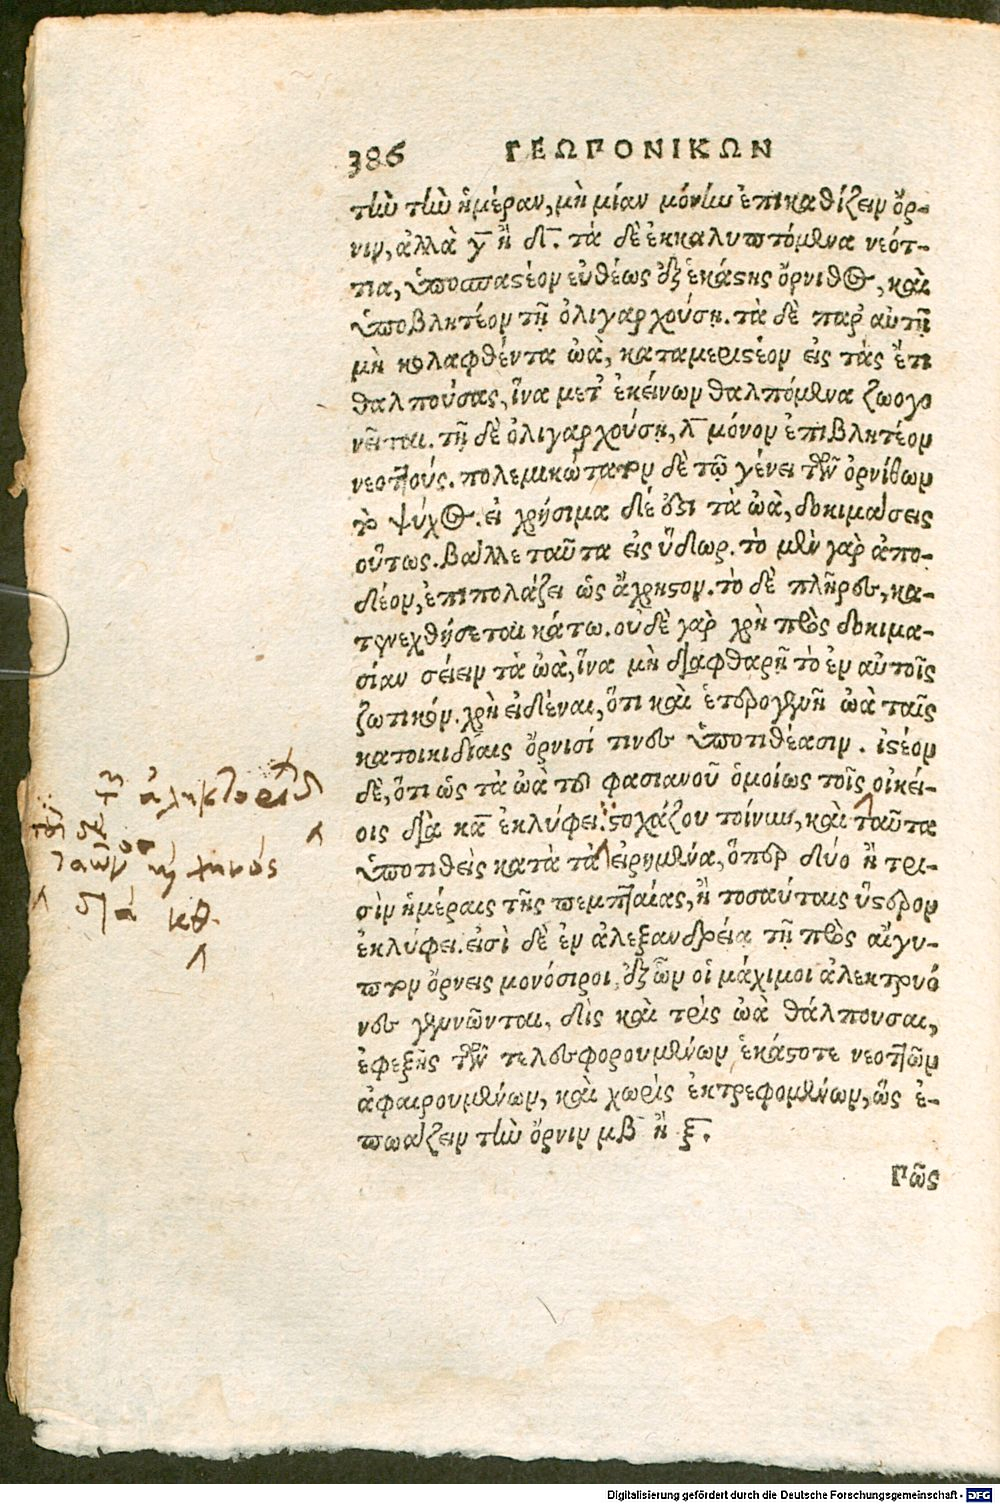 386 ΓΕΩΠΟΝΙΚΩΝ
τὴν τὴν ἡμέραν, μὴ μίαν μόνην ἐπικαθίζειν ὄρ-
νιν, ἀλλὰ γ̄ ἢ δ̄. τὰ δὲ ἐκκαλυπτόμενα νεότ-
τια, ὑποσπαστέον εὐθέως ἐξ ἑκάστης ὄρνιθος, καὶ
ὑποβλητέον τῇ ὀλιγαρχούσῃ. τὰ δὲ παρ' αὐτῇ
μὴ κολαφθέντα ὠὰ, καταμεριστέον εἰς τὰς ἔτι
θαλπούσας, ἵνα μετ' ἐκείνων θαλπόμενα ζωογο
νεῖται. τῇ δὲ ὀλιγαρχούσῃ, λ̄ μόνον ἐπιβλητέον
νεοττούς. πολεμικώτατον δὲ τῷ γένει τῶν ὀρνίθων
τὸ ψύχος. εἰ χρήσιμα δέ ἐστι τὰ ὠὰ, δοκιμάσεις
οὕτως. βάλλε ταῦτα εἰς ὕδωρ. τὸ μὲν γὰρ ἀπο-
δέον, ἐπιπολάζει ὡς ἄχρηστον. τὸ δὲ πλῆρες, κα-
τενεχθήσεται κάτω. οὐδὲ γὰρ χρὴ πρὸς δοκιμα-
σίαν σείειν τὰ ὠὰ, ἵνα μὴ διαφθαρῇ τὸ ἐν αὐτοῖς
ζωτικόν. χρὴ εἰδέναι, ὅτι καὶ ἑτερογενῆ ὠὰ ταῖς
κατοικιδίαις ὄρνισί τινες ὑποτιθέασιν. ἰστέον
δὲ, ὅτι ὡς τὰ ὠὰ τοῦ φασιανοῦ ὁμοίως τοῖς οἰκεί-
οις διὰ κᾱ ἐκλύφει. στοχάζου τοίνυν, καὶ ταῦτα
ὑποτιθεὶς κατὰ τὰ εἰρημένα, ὅπερ δύο ἢ τρι-
σὶν ἡμέραις τῆς πεμπταίας, ἢ τοσαύταις ὕστερον
ἐκλύφει. εἰσὶ δὲ ἐν ἀλεξανδρείᾳ τῇ πρὸς αἴγυ-
πτον ὄρνεις μονόσιροι, ἐξ ὧν οἱ μάχιμοι ἀλεκτρυό
νες γεννῶνται, δὶς καὶ τρὶς ὠὰ θάλπουσαι,
ἐφεξῆς τῶν τελεσφορουμένων ἑκάστοτε νεοττῶν
ἀφαιρουμένων, καὶ χωρὶς ἐκτρεφομένων, ὡς ἐ-
πωάζειν τὴν ὄρνιν μβ̄ ἢ ξ̄.
Πῶς
τῆς ἀλεκτορίδ
τὰ δὲ
ταῶν καὶ χηνὸς
διὰ κθ.
Digitalisierung gefördert durch die Deutsche Forschungsgemeinschaft - DFG